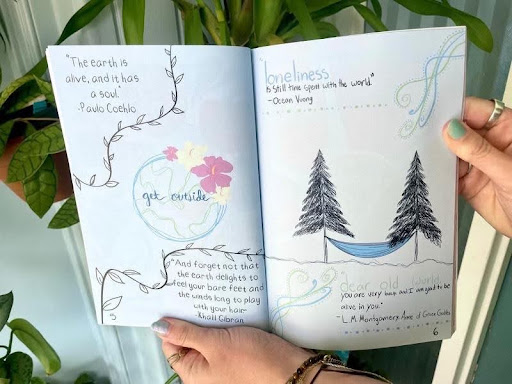 "The earth is
alive, and it has
a soul."
-Paulo Coehlo
get outside
"And forget not that
the earth delights to
feel your bare feet and
the winds long to play
with your hair"
-Khalil Gibran
5
loneliness
is still time spent with the world."
-Ocean Vuong
"dear old world,
you are very lovely and I am glad to be
alive in you."
-L.M. Montgomery, Anne of Green Gables
6